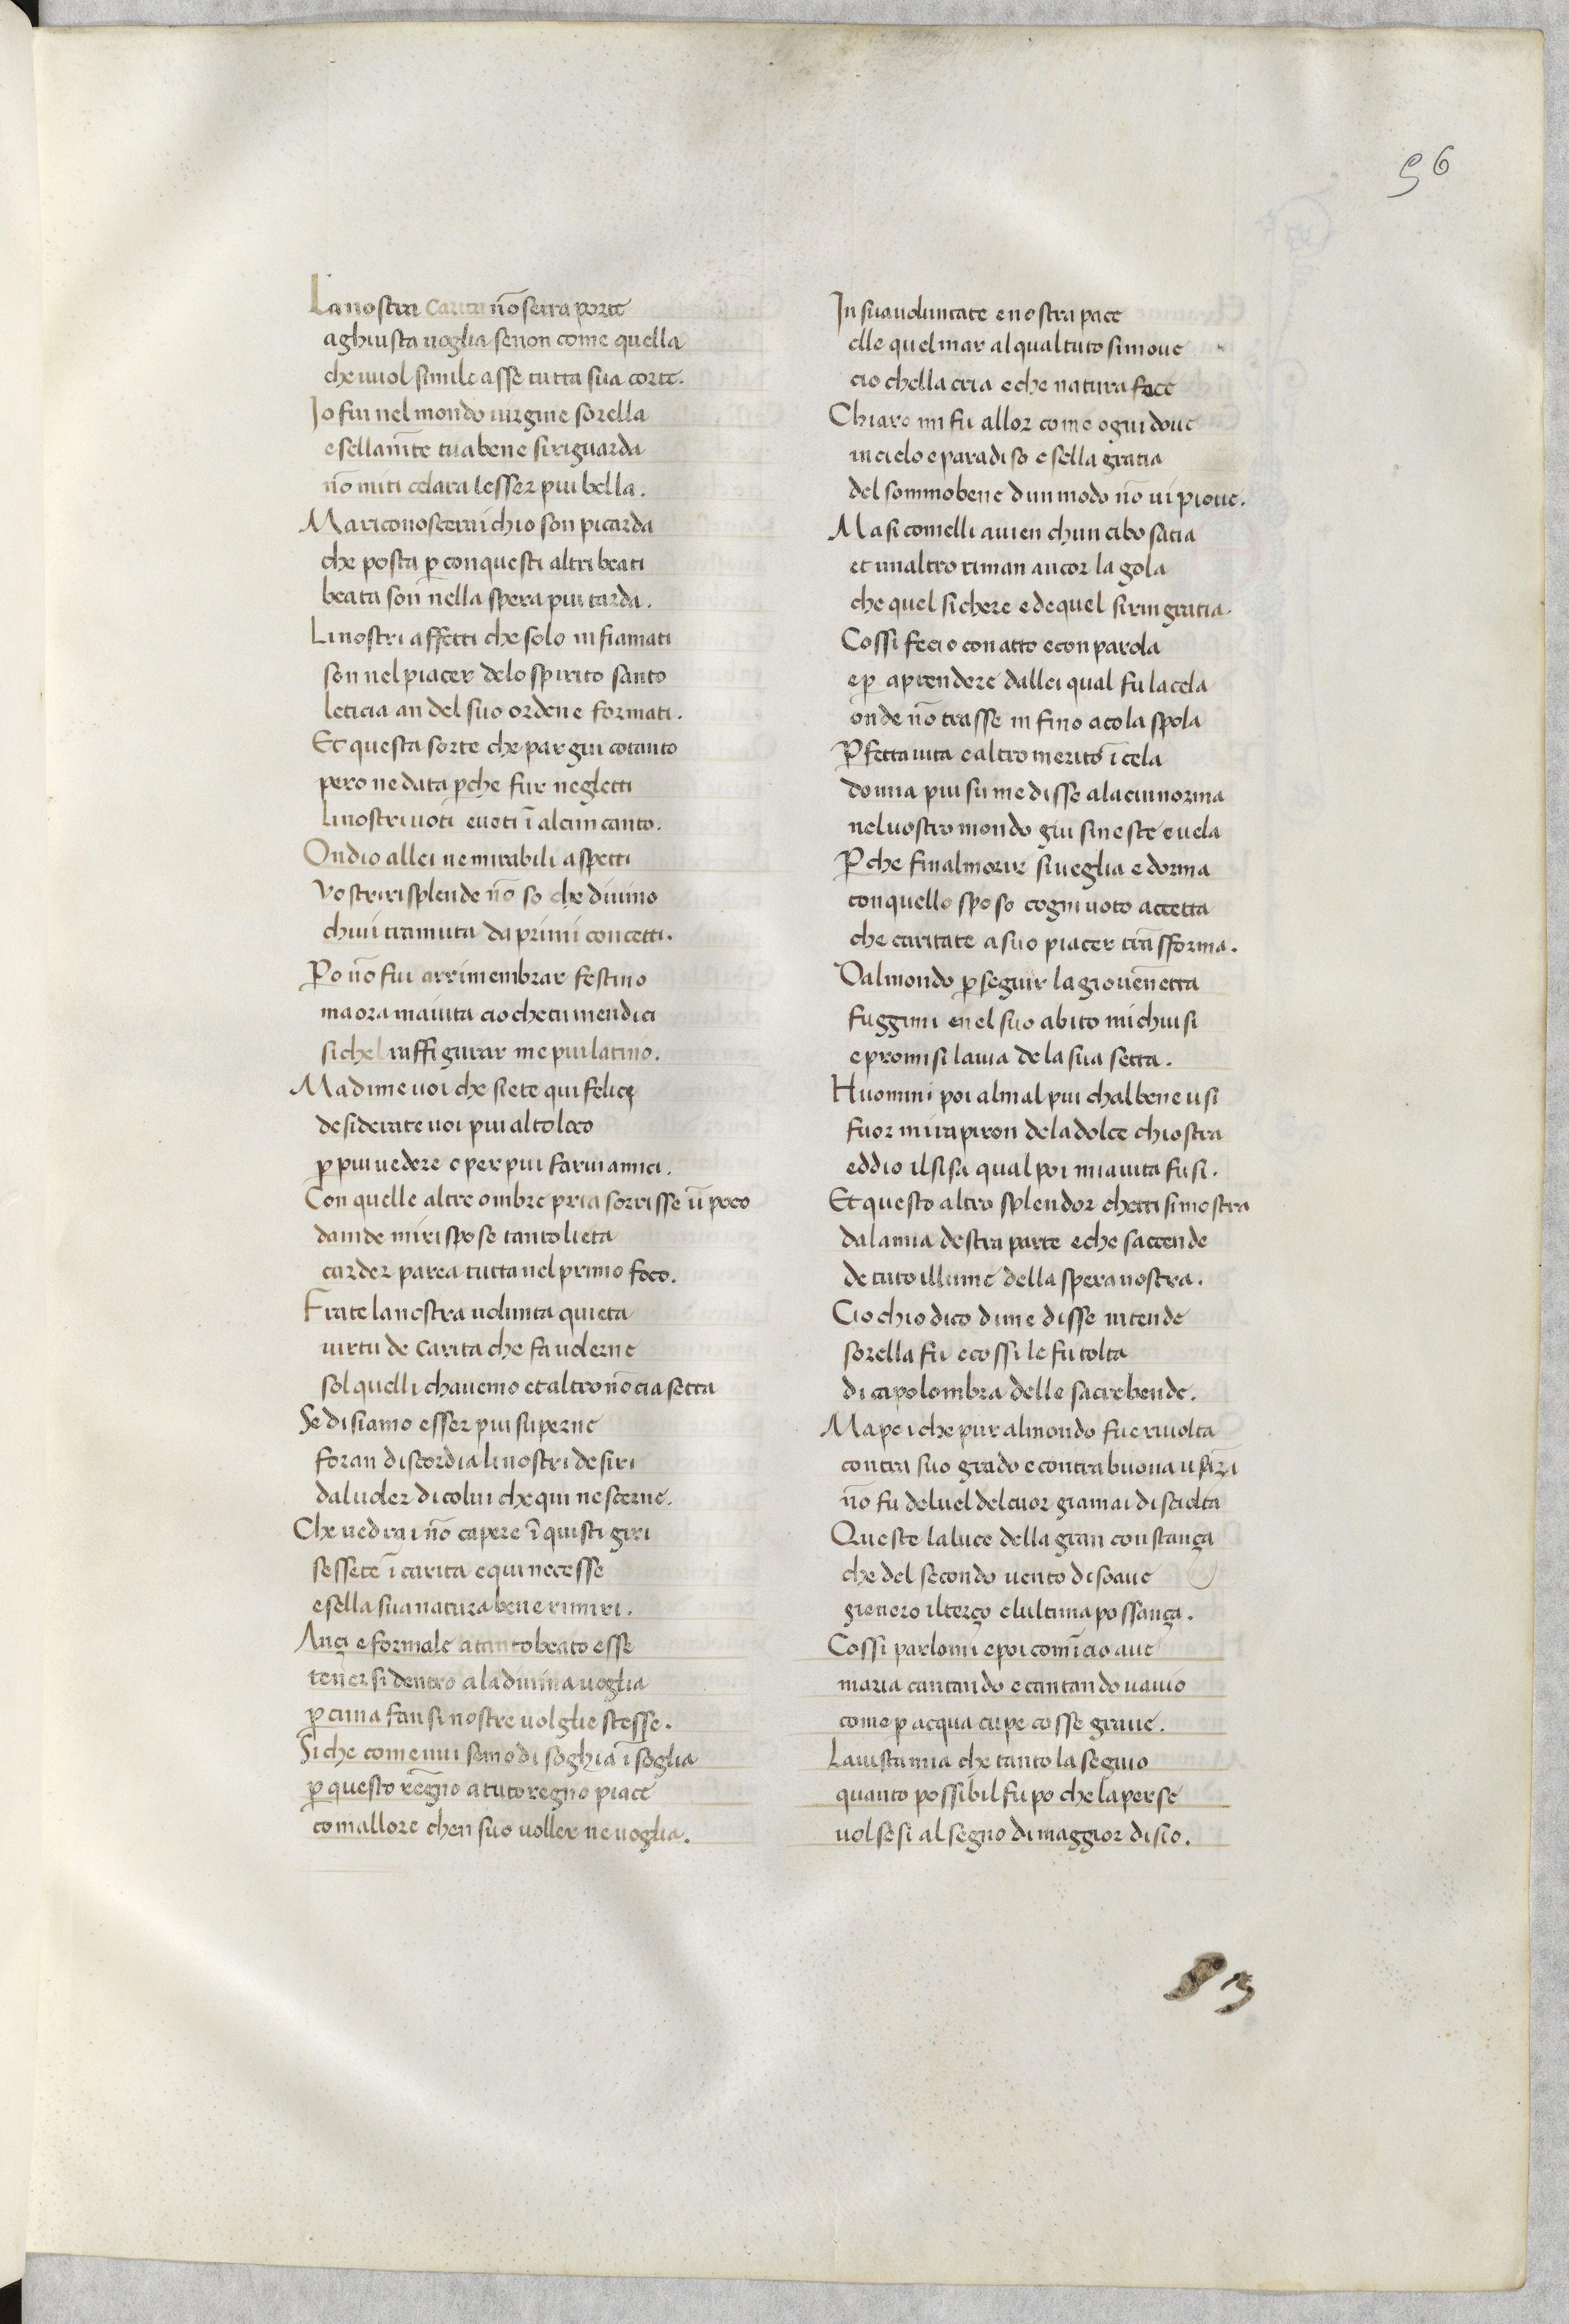 96
La nostra carita nō serra porte
aghiusta uoglia senon come quella
che uuol simile asse tutta sua corte.
Io fui nel mondo uirgine sorella
e sella mīte tua bene si riguarda
nō miti celara lesser piu bella.
Ma riconoscerai chio son picarda
che posta ꝑ con questi altri beati
beata son nella spera piu tarda.
Li nostri affetti che solo infiamati
son nel piacer delo spirito santo
leticia an del suo ordene formati.
Et questa sorte che par giu cotanto
pero ne data ꝑche fur negletti
li nostri uoti e ueti ī alcun canto.
Ondio allei ne mirabili aspetti
vostri risplende nō so che diuino
chiui tramuta da primi concetti.
Po nō fui arrimembrar festino
ma ora maiuita cio che tu mendici
si chel raffigurar me piu latino.
Ma dime uoi che siete qui felici
desiderate uoi piu alto loco
ꝑ piu uedere o per piu farui amici.
Con quelle altre ombre pria sorrisse ū poco
dainde mi rispose tanto lieta
carder parea tutta nel primo foco.
Frate la nostra uolunta quieta
uirtu de carita che fa uolerne
sol quelli chauemo et altro nō cia setta
Se disiamo esser piu superne
foran discordia li nostri desiri
dal uoler di colui che qui ne scerne.
Che uedrai nō capere ī quisti giri
sessete ī carita e qui necesse
e sella sua natura bene rimiri.
Anci e formale a tanto beato esse
tener si dentro ala diuina uoglia
ꝑ cima fan si nostre uolglie stesse.
Si che come nui semo di soghia ī soglia
ꝑ questo regno a tuto regno piace
com allore chen suo uoller ne uoglia.
In sua uoluntate e nostra pace
elle quel mar al qual tuto si moue
cio chella cria e che natura face
Chiaro mi fu allor come ogni doue
in cielo e paradiso e sella gratia
del sommo bene dun modo nō ui pioue.
Ma si comelli auien chun cibo satia
et unaltro riman ancor la gola
che quel si chere e de quel si ringratia.
Cossi fecio con atto e con parola
e ꝑ aprendere dallei qual fu la tela
onde nō trasse in fino a co la spola
Ꝑfetta uita e altro merito ī cela
donna piu su me disse ala cui norma
nel uostro mondo giu si ueste e uela
Ꝑche final morir si ueglia e dorma
con quello sposo cogni uoto accetta
che caritate a suo piacer trāsforma.
Dal mondo ꝑ seguir la giouēnetta
fuggimi en el suo abito mi chiusi
e promisi la uia de la sua setta.
Huomini poi al mal piu chal bene usi
fuor mi rapiron dela dolce chiostra
eddio il si sa qual poi mia uita fusi.
Et questo altro splendor chetti si mostra
dala mia destra parte e che saccende
de tuto illume della spera nostra.
Cio chio dico di me disse intende
sorella fu e cossi le fu tolta
di capo lombra delle sacre bende.
Ma poi che pur al mondo fue riuolta
contra suo grado e contra buona usāza
nō fu del uel del cuor giamai disciolta
Queste la luce della gran constança
che del secondo uento di soaue
genero il terço e lultima possança.
Cossi parlomi e poi comīcio aue
maria cantando e cantando uauio
come ꝑ acqua cupe cosse graue.
La uista mia che tanto la seguio
quanto possibil fu po che la perse
uolsesi al segno di maggior disio.
83